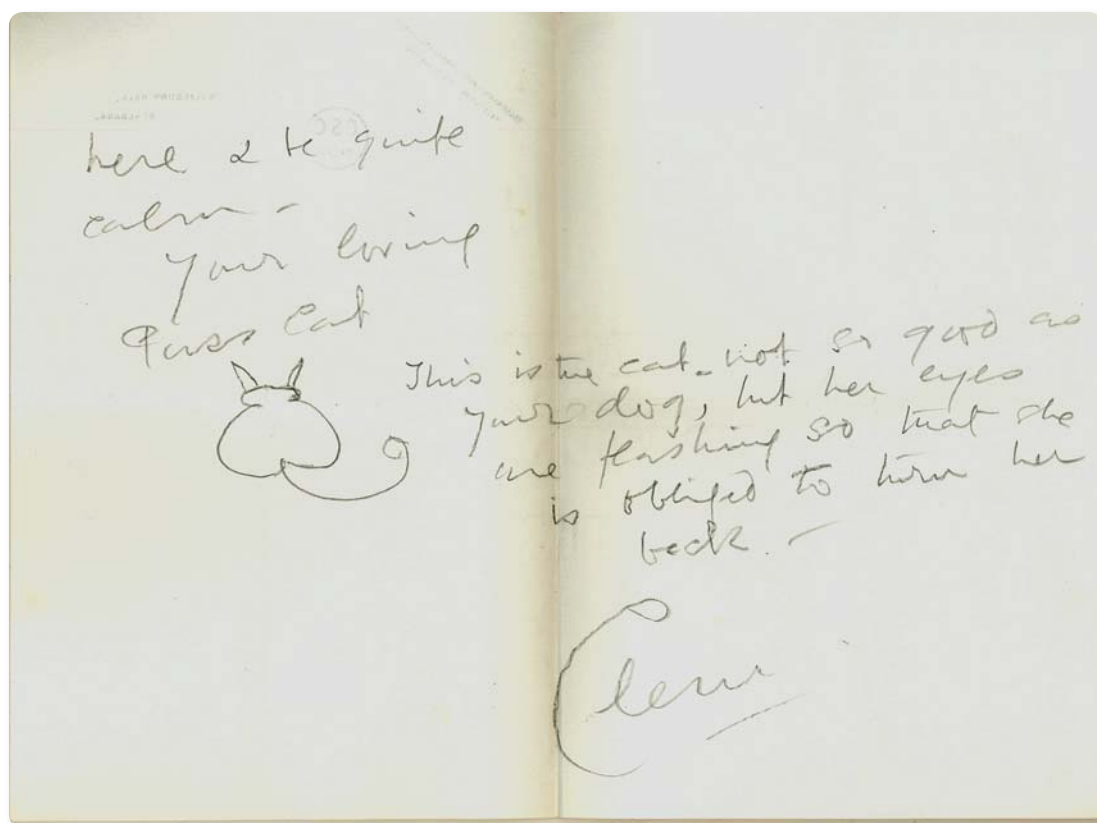 here & be quite
calm –
Your loving
Puss Cat
This is the cat – not so good as
your dog, but her eyes
are flashing so that she
is obliged to turn her
back. –
Clem
CSC